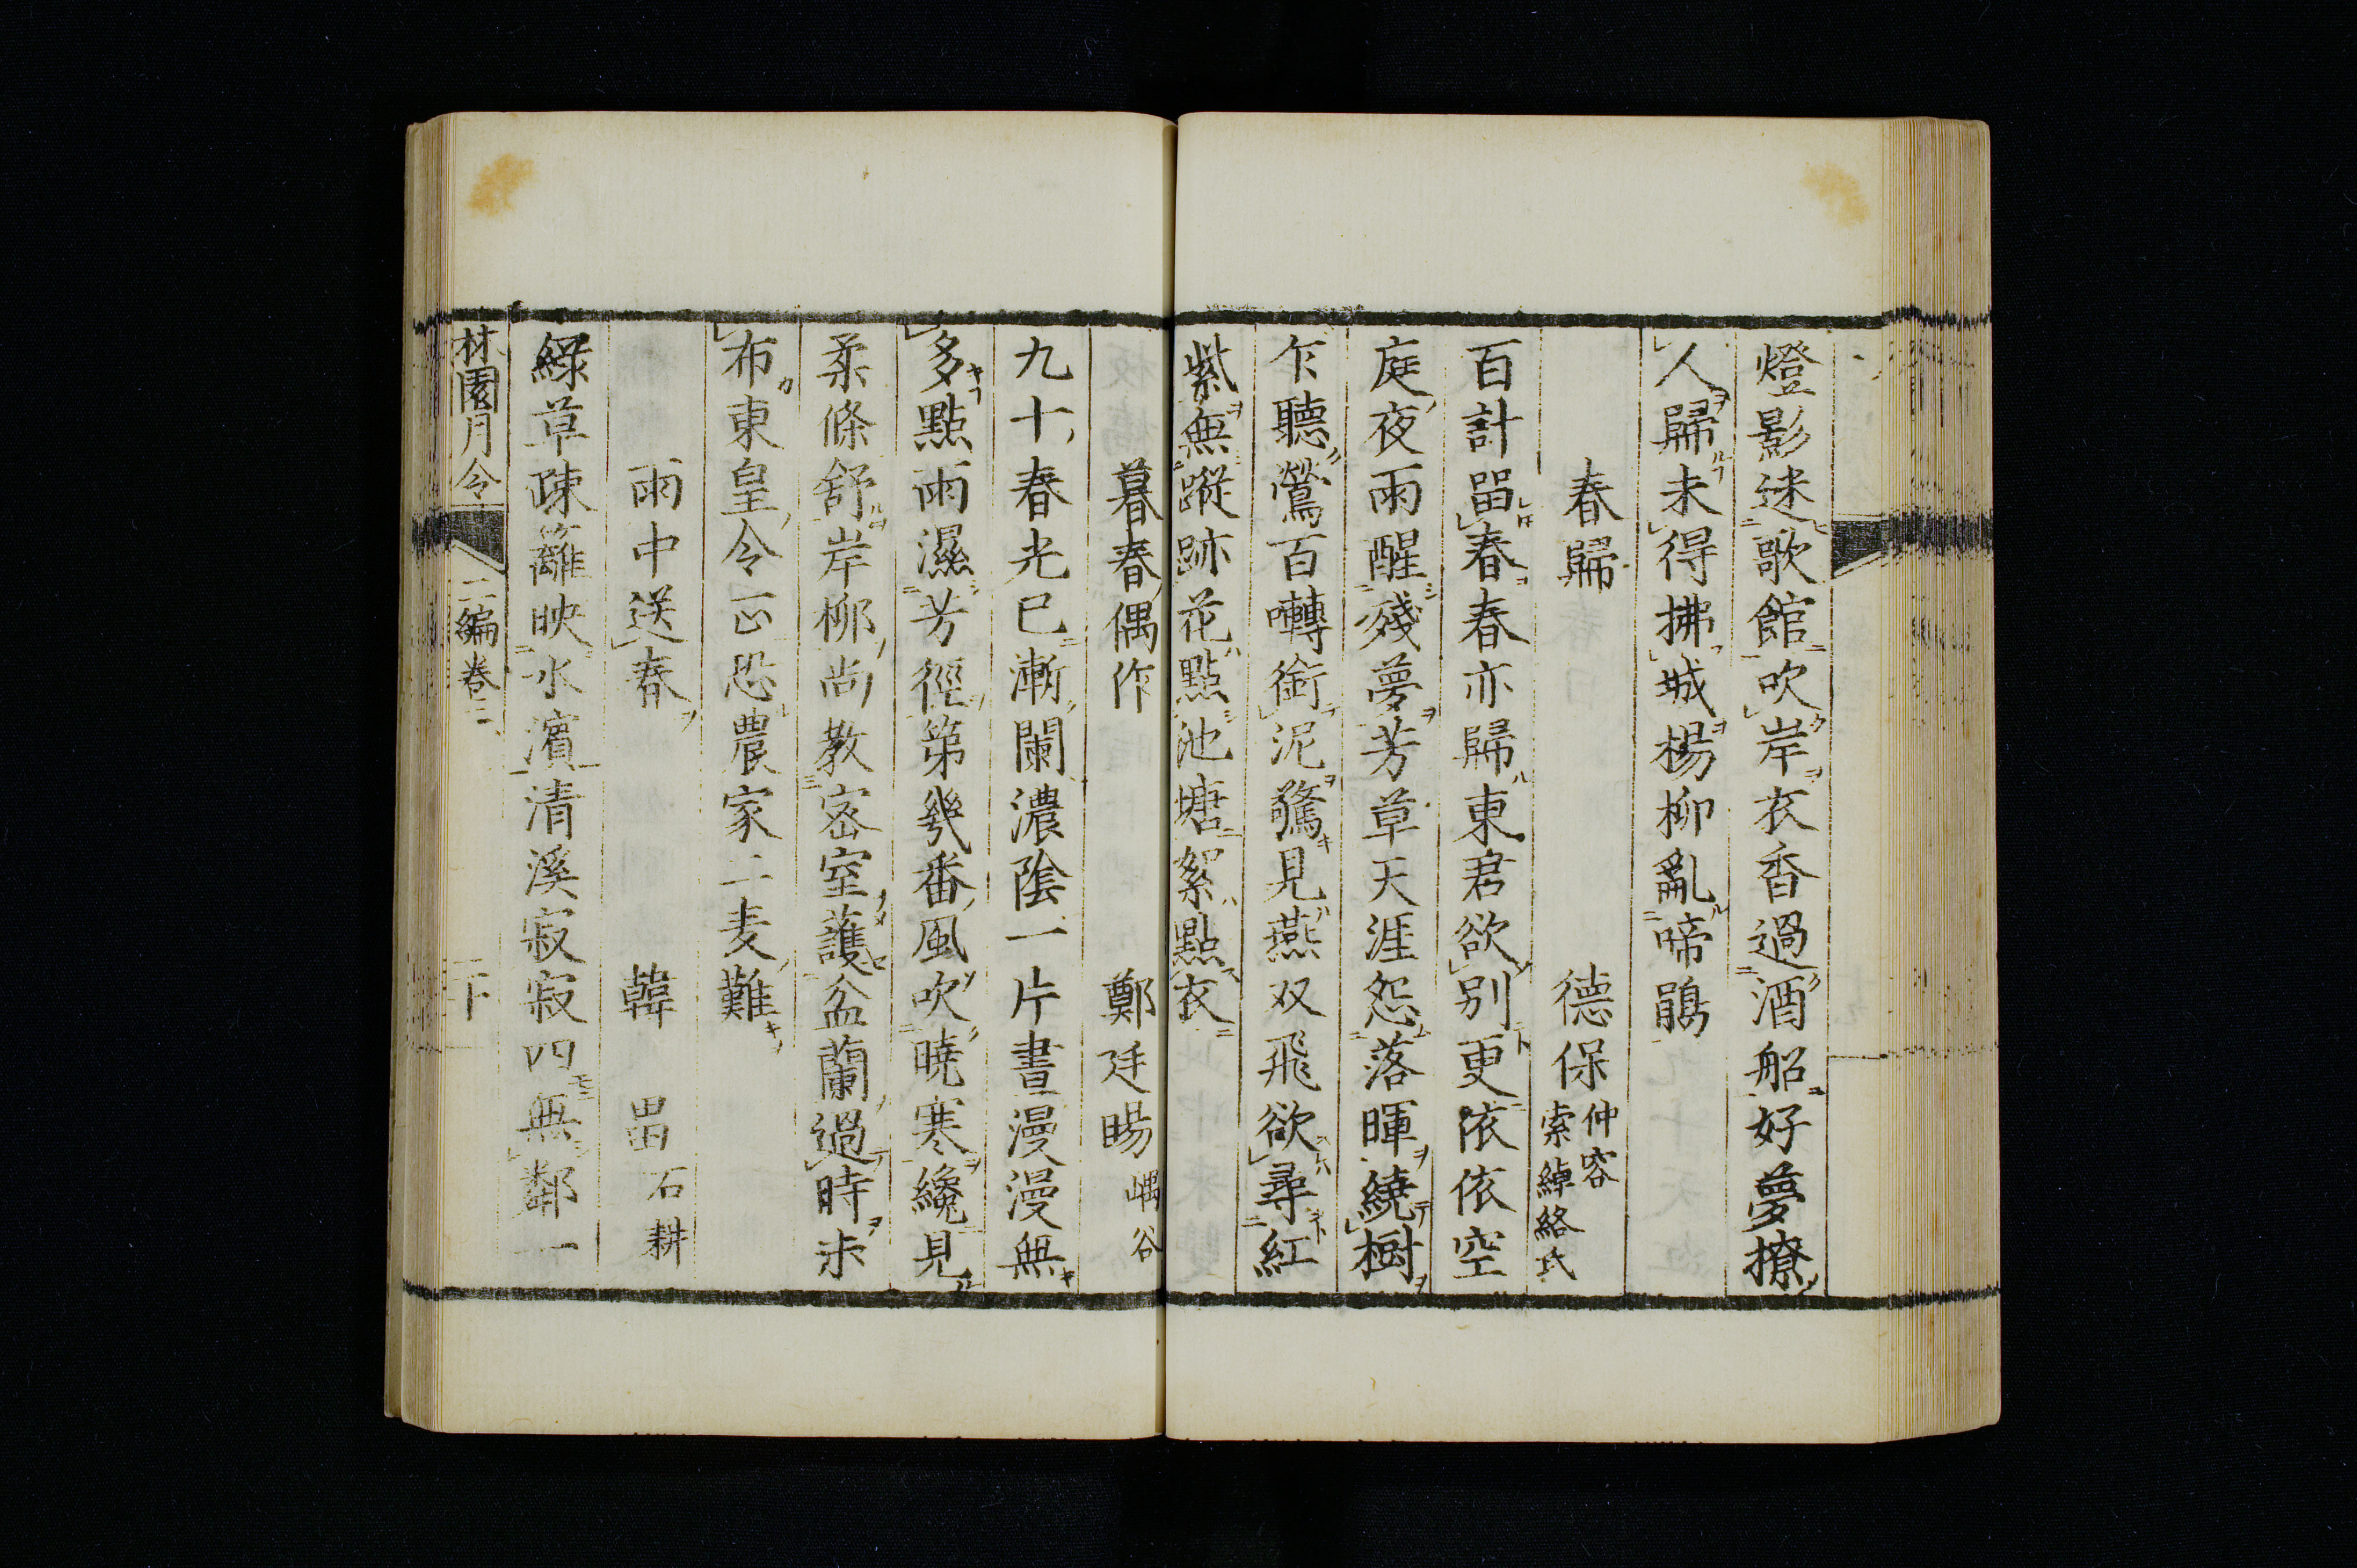 燈影迷歌館吹岸衣香過酒船好夢撩
人歸未得拂城楊柳亂啼鵑
春歸　德保 仲容 索綽絡氏
百計畱春春亦歸東君欲別更依依空
庭夜雨醒殘夢芳草天涯怨落暉繞樹
乍聽鶯百囀銜泥驚見燕双飛欲尋紅
紫無蹤跡花點池塘絮點衣
暮春偶作　鄭廷暘 嵎谷
九十春光已漸闌濃陰一片晝漫漫無
多點雨濕芳徑第幾番風吹曉寒纔見
柔條舒岸柳尚教密室護盆蘭過時未
布東皇令正恐農家二麦難
雨中送春　韓畕 石耕
綠草疎籬映水濱清溪寂寂四無鄰一
林園月令　二編卷二　二十